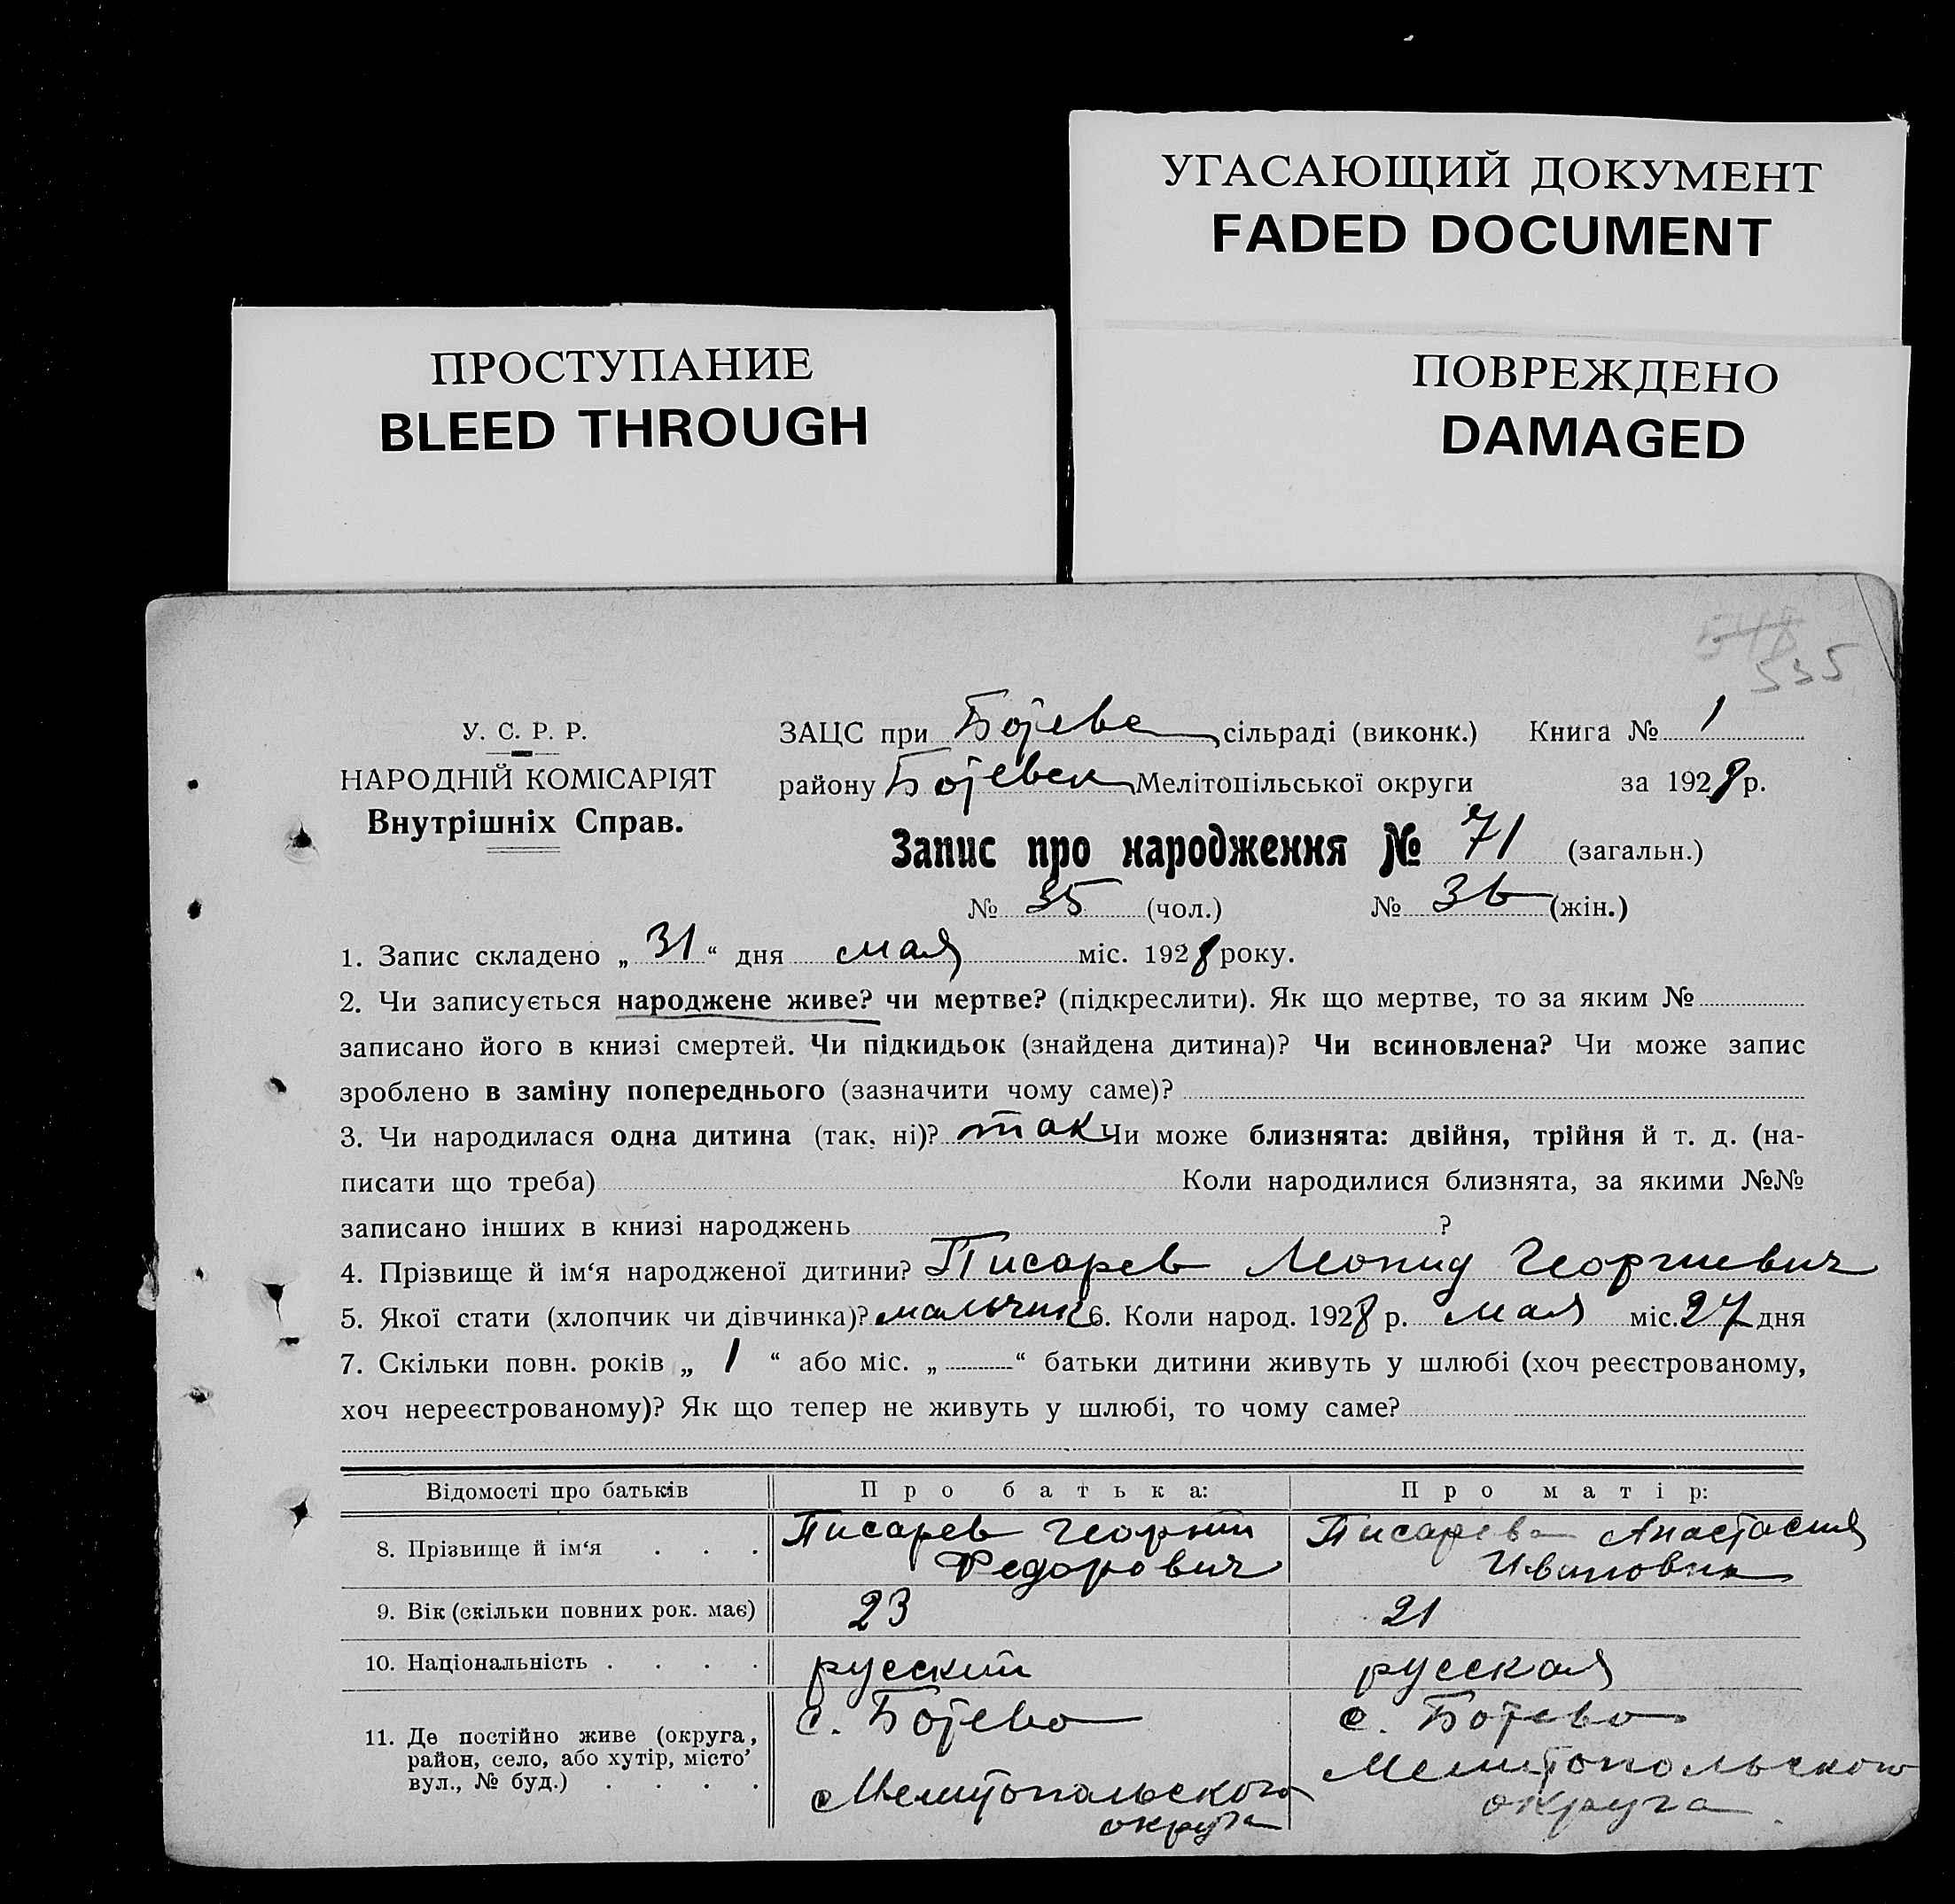 УГАСАЮЩИЙ ДОКУМЕНТ
FADED DOCUMENT
ПРОСТУПАНИЕ
BLEED THROUGH
ПОВРЕЖДЕНО
DAMAGED
535
У. С. Р. Р.
НАРОДНІЙ КОМІСАРІЯТ
Внутрішніх Справ.
ЗАЦС при Ботево сільраді (виконк.) Книга № 1
району Ботевск Мелітопільської округи за 1928 р.
Запис про народження № 71 (загальн.)
№ 35 (чол.) № 36 (жін.)
1. Запис складено „ 31 “ дня мая міс. 1928 року.
2. Чи записується народжене живе? чи мертве? (підкреслити). Як що мертве, то за яким №
записано його в книзі смертей. Чи підкидьок (знайдена дитина)? Чи всиновлена? Чи може запис
зроблено в заміну попереднього (зазначити чому саме)?
3. Чи народилася одна дитина (так, ні)? так Чи може близнята: двійня, трійня й т. д. (на-
писати що треба) Коли народилися близнята, за якими №№
записано інших в книзі народжень ?
4. Прізвище й ім‘я народженої дитини? Писарев Леонид Георгиевич
5. Якої стати (хлопчик чи дівчинка)? мальчик 6. Коли народ. 1928 р. мая міс. 27 дня
7. Скільки повн. років „ 1 “ або міс. „ “ батьки дитини живуть у шлюбі (хоч реєстрованому,
хоч нереєстрованому)? Як що тепер не живуть у шлюбі, то чому саме?
Відомості про батьків Про батька: Про матір:
8. Прізвище й ім‘я . . . Писарев Георгий Федорович Писарева Анастасия Ивановна
9. Вік (скільки повних рок. має) 23 21
10. Національність . . . . русский русская
11. Де постійно живе (округа, район, село, або хутір, місто’ вул., № буд.) . . . . с. Ботево Мелитопольского округа с. Ботево Мелитопольского округа